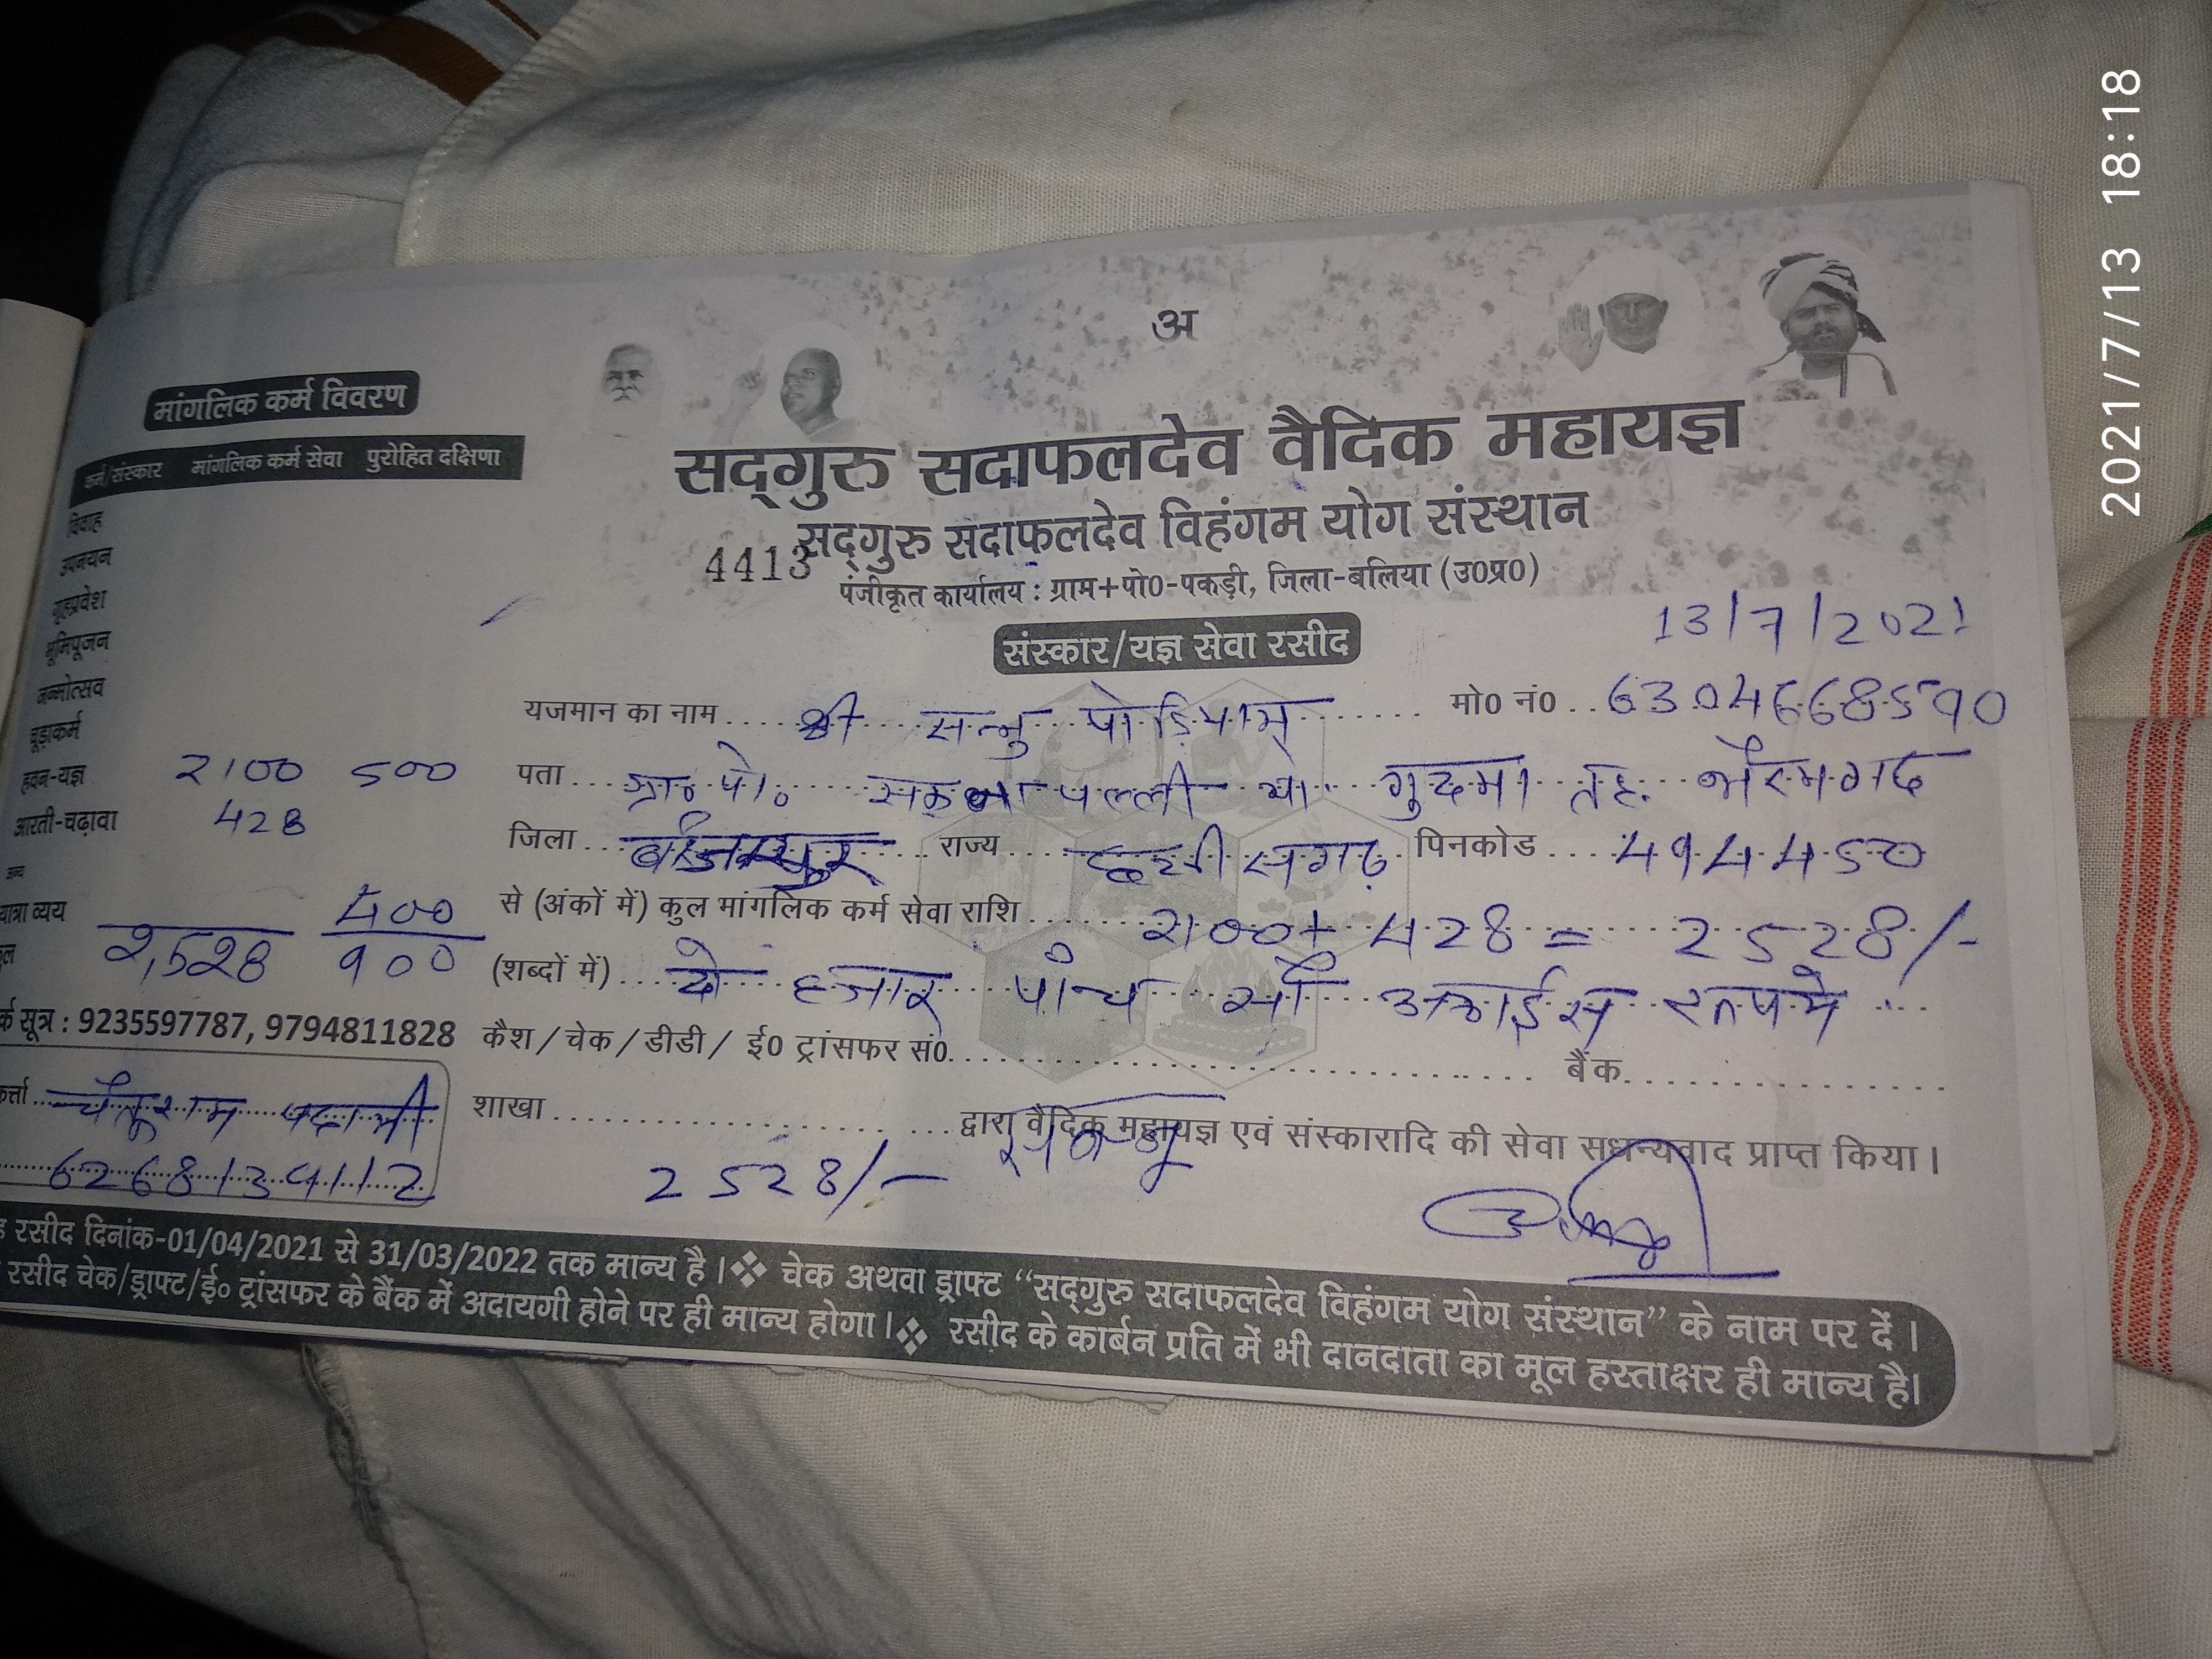 2021/7/13 18:18
अ
मांगलिक कर्म विवरण
कर्म/संस्कार मांगलिक कर्म सेवा पुरोहित दक्षिणा
विवाह
उपनयन
गृहप्रवेश
भूमिपूजन
जन्मोत्सव
चूड़ाकर्म
हवन-यज्ञ 2100 500
आरती-चढ़ावा 428
अन्य
यात्रा व्यय 400
2,528 900
सूत्र : 9235597787, 9794811828
चैतुराम
6268139112
सद्गुरु सदाफलदेव वैदिक महायज्ञ
सद्गुरु सदाफलदेव विहंगम योग संस्थान
4413
पंजीकृत कार्यालय : ग्राम+पो0-पकड़ी, जिला-बलिया (उ0प्र0)
संस्कार/यज्ञ सेवा रसीद
13/7/2021
यजमान का नाम श्री सन्नु पोड़ियाम् मो0 नं0 6304668590
पता ग्रा. पो. गुदमा तह. भैरमगढ
जिला बीजापुर राज्य छत्तीसगढ़ पिनकोड 494450
से (अंकों में) कुल मांगलिक कर्म सेवा राशि 2100+428= 2528/-
(शब्दों में) दो हजार पाँच सौ अठ्ठाईस रूपये
कैश/चेक/डीडी/ ई0 ट्रांसफर सं0 बैंक
शाखा द्वारा वैदिक महायज्ञ एवं संस्कारादि की सेवा सधन्यवाद प्राप्त किया।
2528/-
रसीद दिनांक-01/04/2021 से 31/03/2022 तक मान्य है।❖ चेक अथवा ड्राफ्ट “सद्गुरु सदाफलदेव विहंगम योग संस्थान” के नाम पर दें।
रसीद चेक/ड्राफ्ट/ई० ट्रांसफर के बैंक में अदायगी होने पर ही मान्य होगा।❖ रसीद के कार्बन प्रति में भी दानदाता का मूल हस्ताक्षर ही मान्य है।